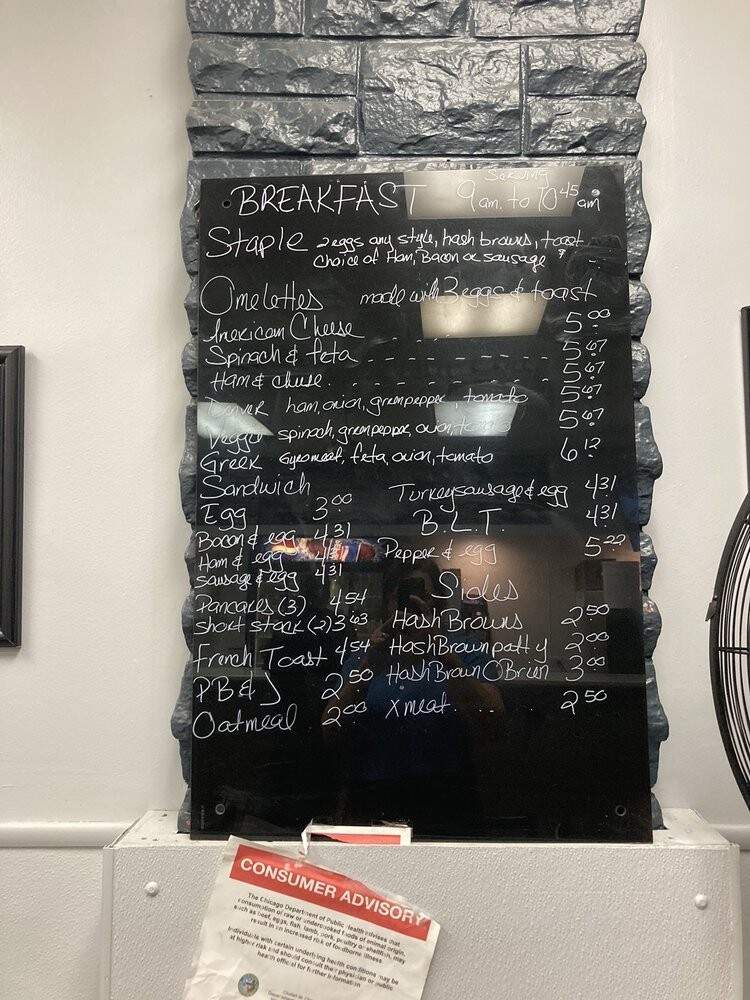 Serving
BREAKFAST 9 am. to 10 45 am
Staple 2 eggs any style, hash browns, toast
choice of Ham, Bacon or sausage
Omelettes made with 3 eggs & toast
American Cheese 5.00
Spinach & feta - - - - - - - 5.67
Ham & cheese . - - - - - - - 5.67
Denver ham, onion, greenpepper, tomato 5.67
Veggie spinach, greenpepper, onion, tomato 5.67
Greek Gyromeat, feta, onion, tomato 6.12
Sandwich
Turkey sausage & egg 4.31
Egg 3.00
B.L.T. 4.31
Bacon & egg 4.31
Pepper & egg 5.22
Ham & egg 4.31
sausage & egg 4.31
Sides
Pancakes (3) 4.54
short stack (2) 3.63
Hash Browns 2.50
French Toast 4.54
Hash Brown patty 2.00
Hash Brown O'Brien 3.00
PB & J 2.50
Oatmeal 2.00
X meat . . . . 2.50
CONSUMER ADVISORY
The Chicago Department of Public Health advises that
consumption of raw or undercooked foods of animal origin,
such as beef, eggs, fish, lamb, pork, poultry or shellfish, may
result in an increased risk of foodborne illness.
Individuals with certain underlying health conditions may be
at higher risk and should consult their physician or public
health official for further information